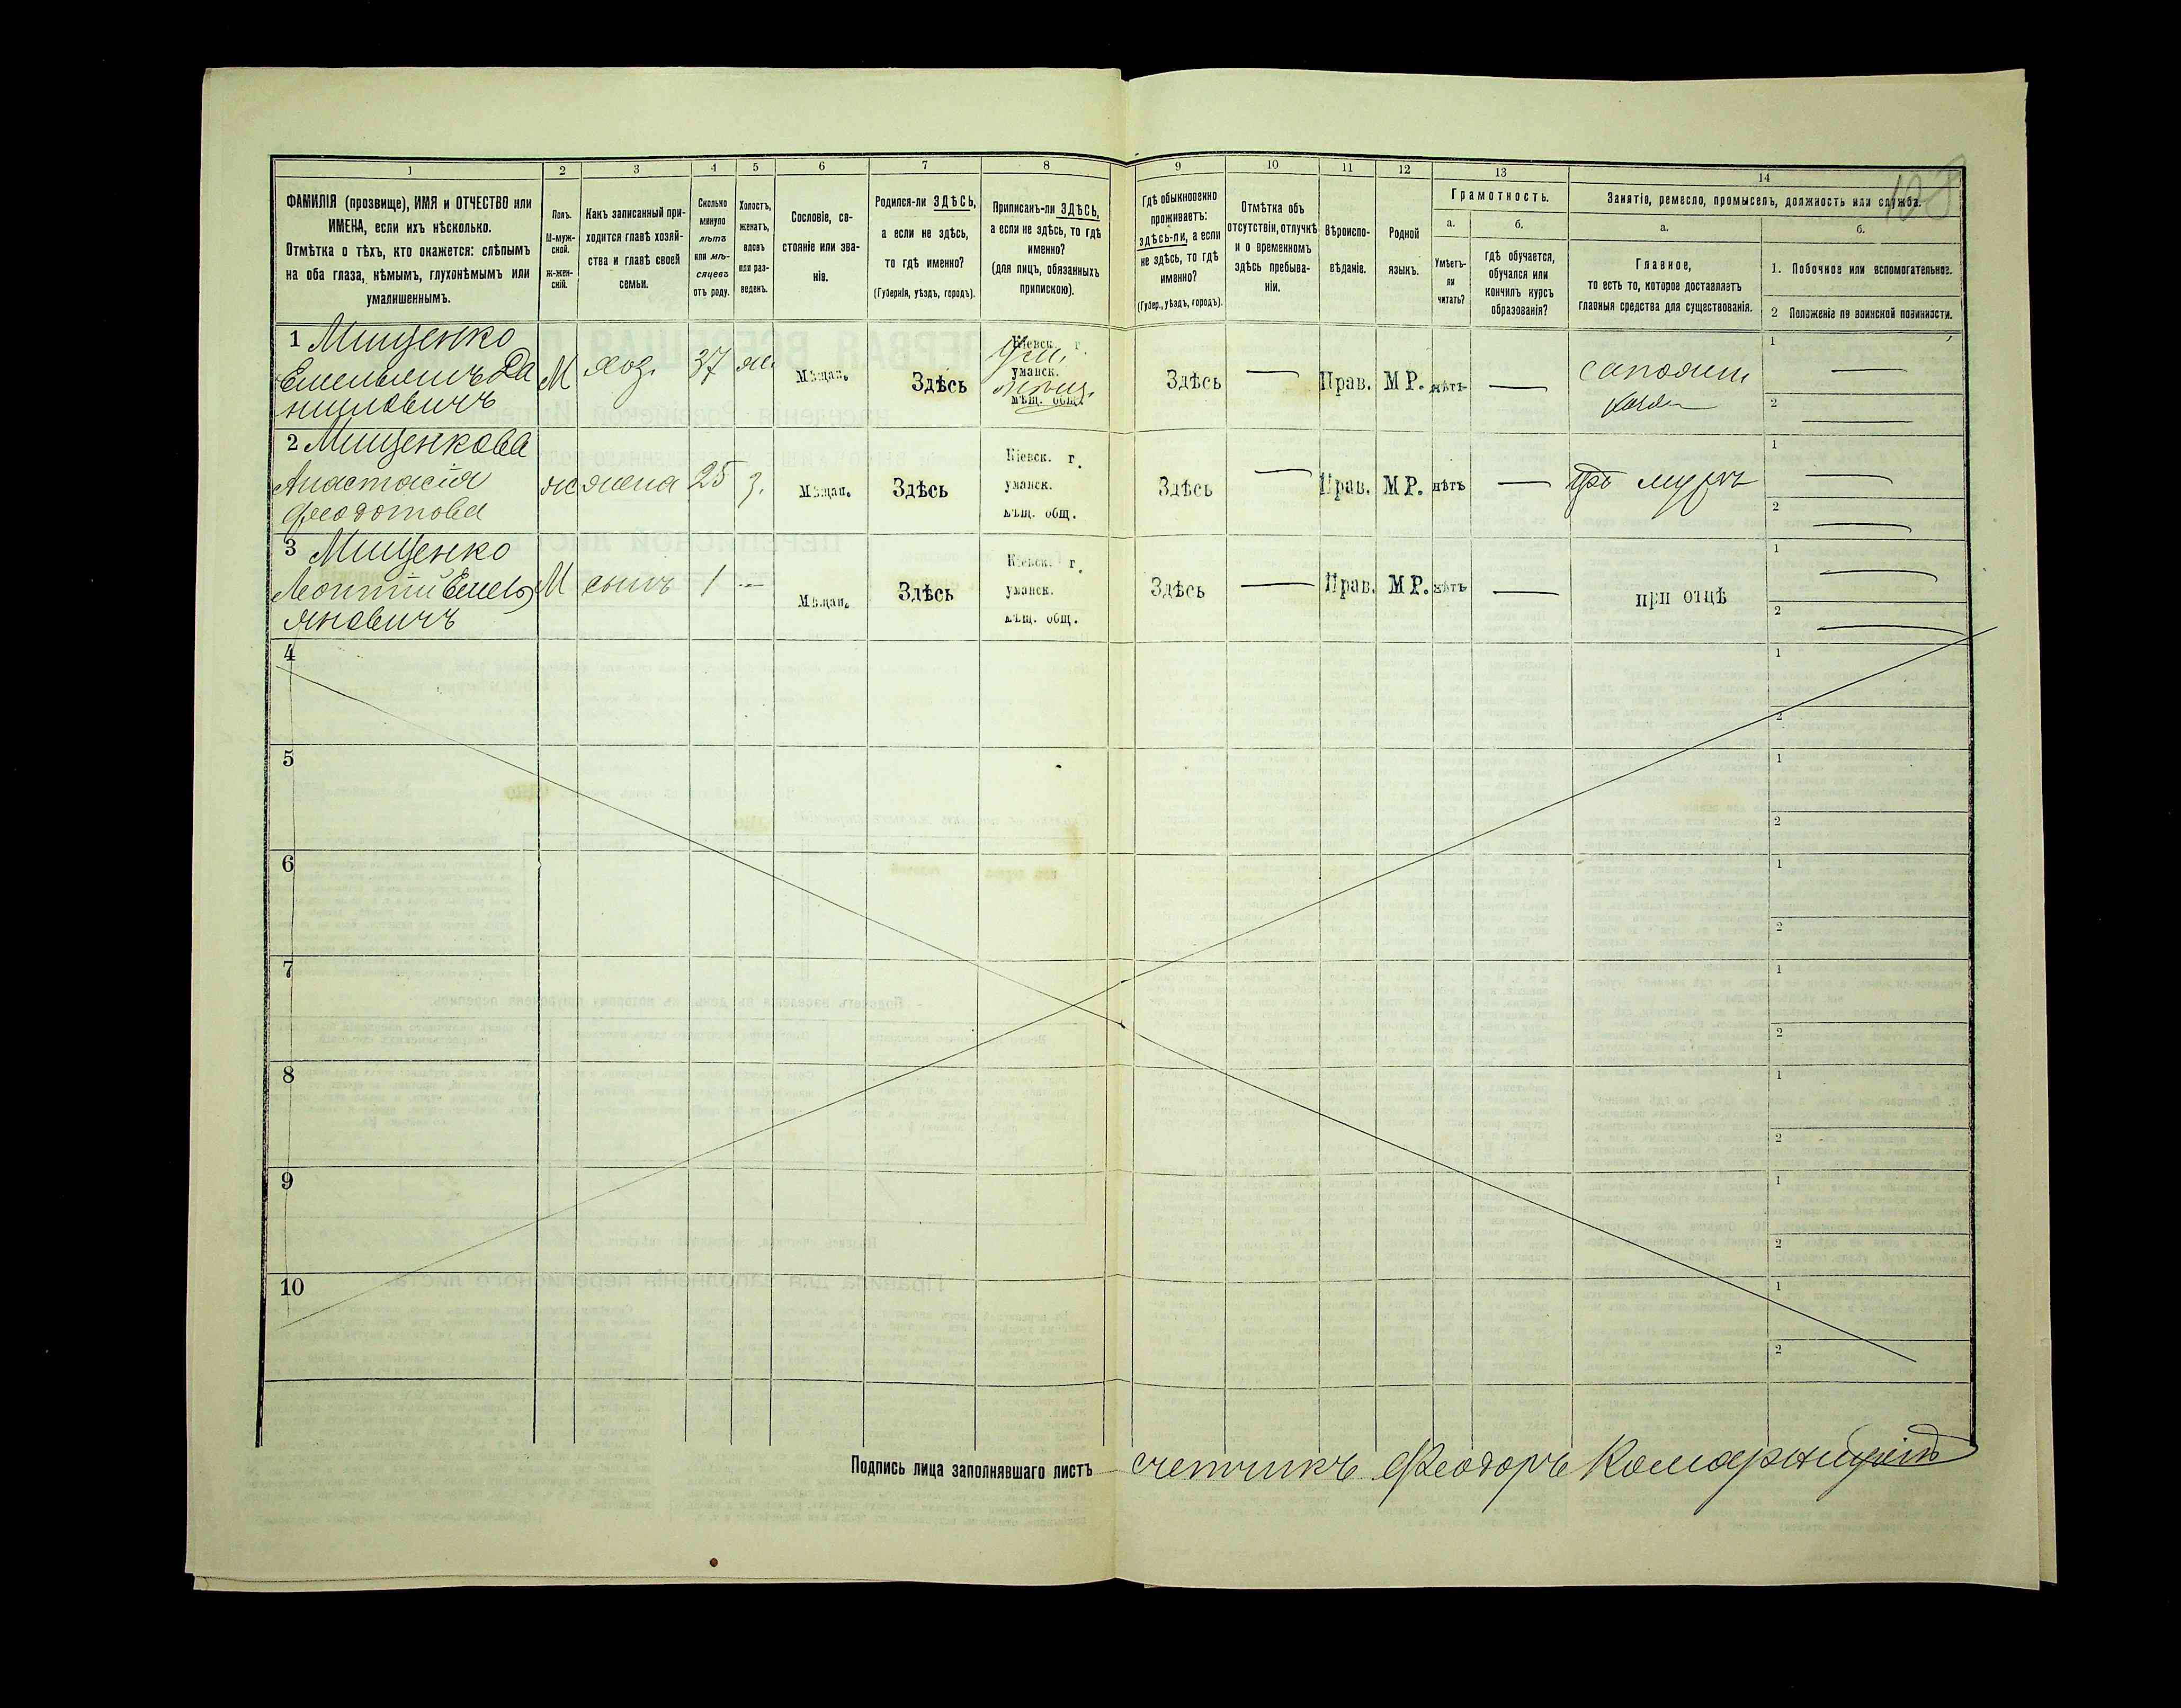 108
1 2 3 4 5 6 7 8 9 10 11 12 13 14
ФАМИЛІЯ (прозвище), ИМЯ и ОТЧЕСТВО или
ИМЕНА, если ихъ нѣсколько.
Отмѣтка о тѣхъ, кто окажется: слѣпымъ
на оба глаза, нѣмымъ, глухонѣмымъ или
умалишеннымъ.
Полъ.
М-муж-
ской.
ж-жен-
скій.
Какъ записанный при-
ходится главѣ хозяй-
ства и главѣ своей
семьи.
Сколько
минуло
лѣтъ
или мѣ-
сяцевъ
отъ роду.
Холостъ,
женатъ,
вдовъ
или раз-
веденъ.
Сословіе, со-
стояніе или зва-
ніе.
Родился-ли ЗДѢСЬ,
а если не здѣсь,
то гдѣ именно?
(Губернія, уѣздъ, городъ).
Приписанъ-ли ЗДѢСЬ,
а если не здѣсь, то гдѣ
именно?
(для лицъ, обязанныхъ
припискою).
Гдѣ обыкновенно
проживаетъ:
здѣсь-ли, а если
не здѣсь, то гдѣ
именно?
(Губер., уѣздъ, городъ).
Отмѣтка объ
отсутствіи, отлучкѣ
и о временномъ
здѣсь пребыва-
ніи.
Вѣроиспо-
вѣданіе.
Родной
языкъ.
Грамотность.
а.
Умѣетъ-
ли
читать?
б.
гдѣ обучается,
обучался или
кончилъ курсъ
образованія?
Занятіе, ремесло, промыселъ, должность или служба.
а.
Главное,
то есть то, которое доставляетъ
главныя средства для существованія.
б.
1. Побочное или вспомогательное.
2 Положеніе по воинской повинности.
1 Мищенко
Емельянъ Да
ниловичъ
М хоз. 37 ж. Мѣщан. Здѣсь
Кіевск. г.
уманск.
мѣщ. общ.
Здѣсь — Прав. М Р. нѣтъ —
сапожни
1 —
2 —
2 Мищенкова
Анастасія
Феодотова
ж жена 25 з. Мѣщан. Здѣсь
Кіевск. г.
уманск.
мѣщ. общ.
Здѣсь — Прав. М Р. нѣтъ —
при мужѣ
1 —
2 —
3 Мищенко
Леонтій Емель
яновичъ
М сынъ 1 — Мѣщан. Здѣсь
Кіевск. г.
уманск.
мѣщ. общ.
Здѣсь — Прав. М Р. нѣтъ —
при отцѣ
1 —
2 —
4 1
2
5 1
2
6 1
2
7 1
2
8 1
2
9 1
2
10 1
2
Подпись лица заполнявшаго листъ счетчикъ Феодоръ Комарницкій